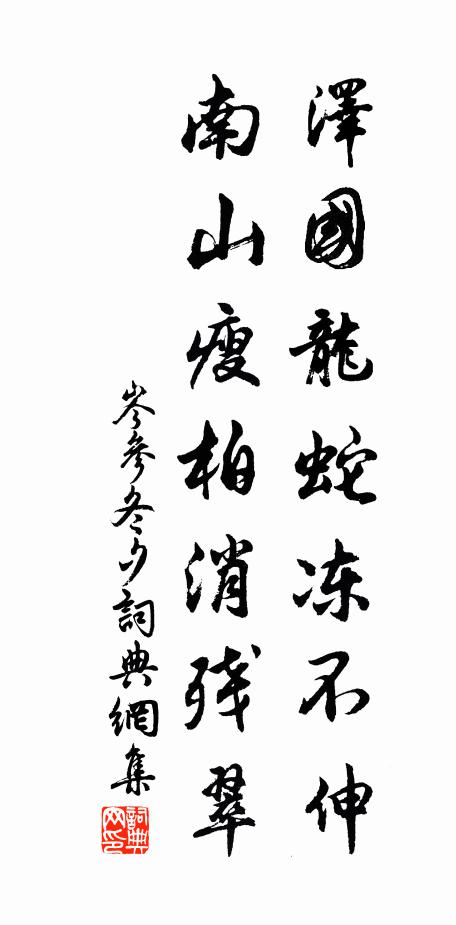 澤國龍蛇冻不伸
南山瘦柏消残翠
岑參冬夕詞典網集
詞典网印